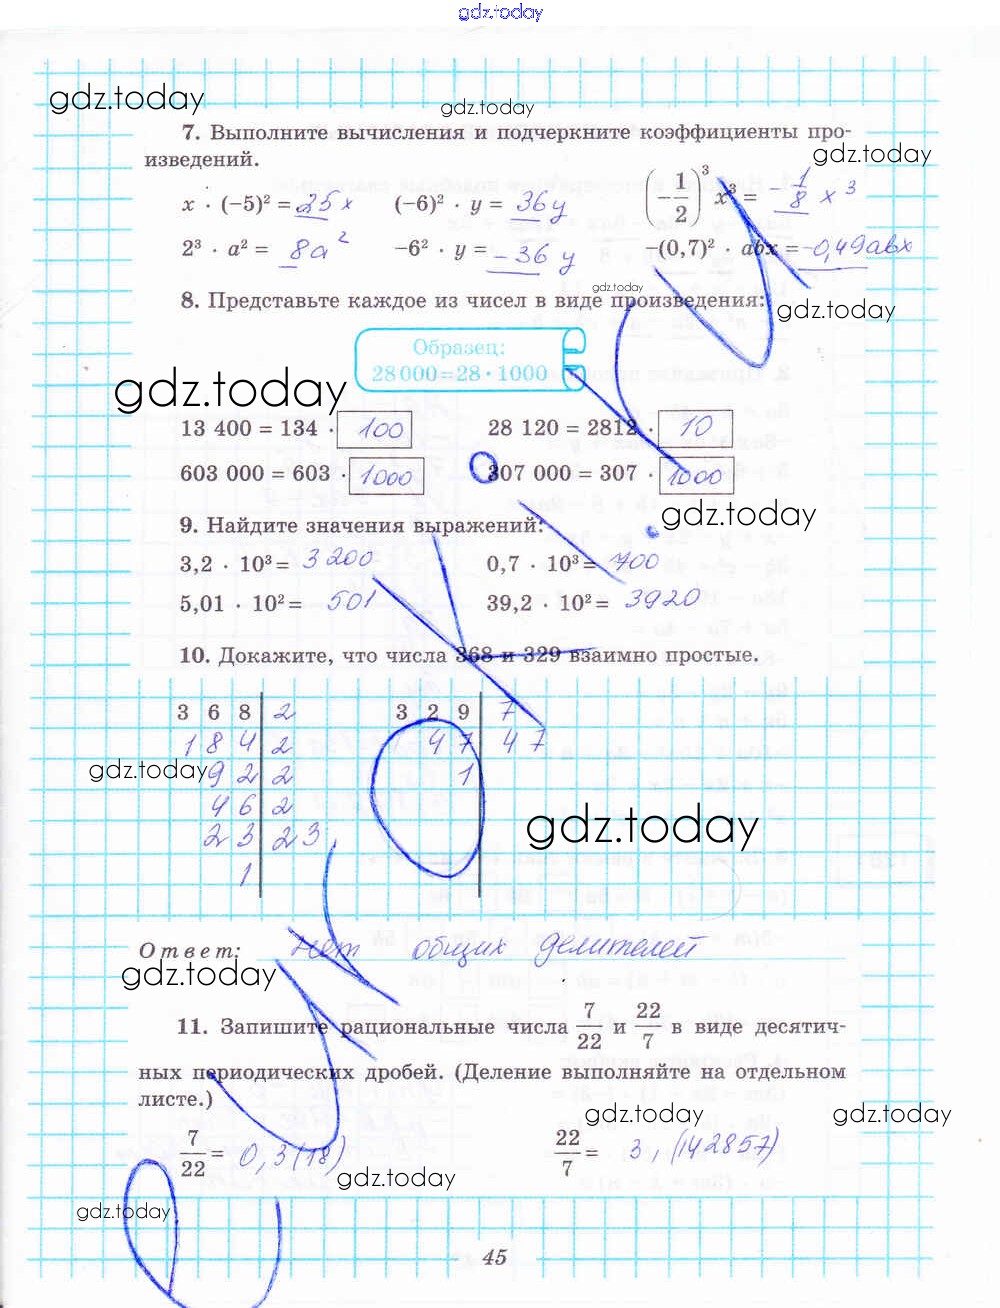 gdz.today
gdz.today
gdz.today
7. Выполните вычисления и подчеркните коэффициенты про-
изведений.
gdz.today
x · (−5)² = 25x (−6)² · y = 36y (−1/2)³ x³ = −1/8 x³
2³ · a² = 8a² −6² · y = −36y −(0,7)² · abx = −0,49abx
gdz.today
8. Представьте каждое из чисел в виде произведения:
gdz.today
Образец:
28 000=28 · 1000
gdz.today
13 400 = 134 · 100 28 120 = 2812 · 10
603 000 = 603 · 1000 307 000 = 307 · 1000
gdz.today
9. Найдите значения выражений:
3,2 · 10³ = 3200 0,7 · 10³ = 700
5,01 · 10² = 501 39,2 · 10² = 3920
10. Докажите, что числа 368 и 329 взаимно простые.
3 6 8 | 2 3 2 9 | 7
1 8 4 | 2 4 7 | 4 7
gdz.today
9 2 | 2 1
4 6 | 2
gdz.today
2 3 | 2 3
1
Ответ: Нет общих делителей
gdz.today
11. Запишите рациональные числа 7/22 и 22/7 в виде десятич-
ных периодических дробей. (Деление выполняйте на отдельном
листе.)
gdz.today gdz.today
7/22 = 0,3(18) 22/7 = 3,(142857)
gdz.today
gdz.today
45